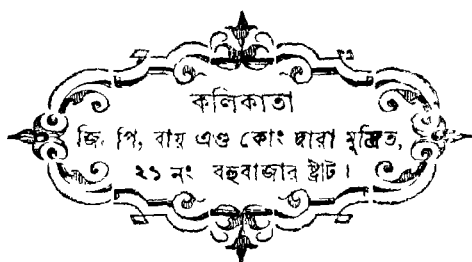 কলিকাতা
জি, পি, রায় এণ্ড কোং দ্বারা মুদ্রিত,
২১ নং বহুবাজার ষ্ট্রীট।